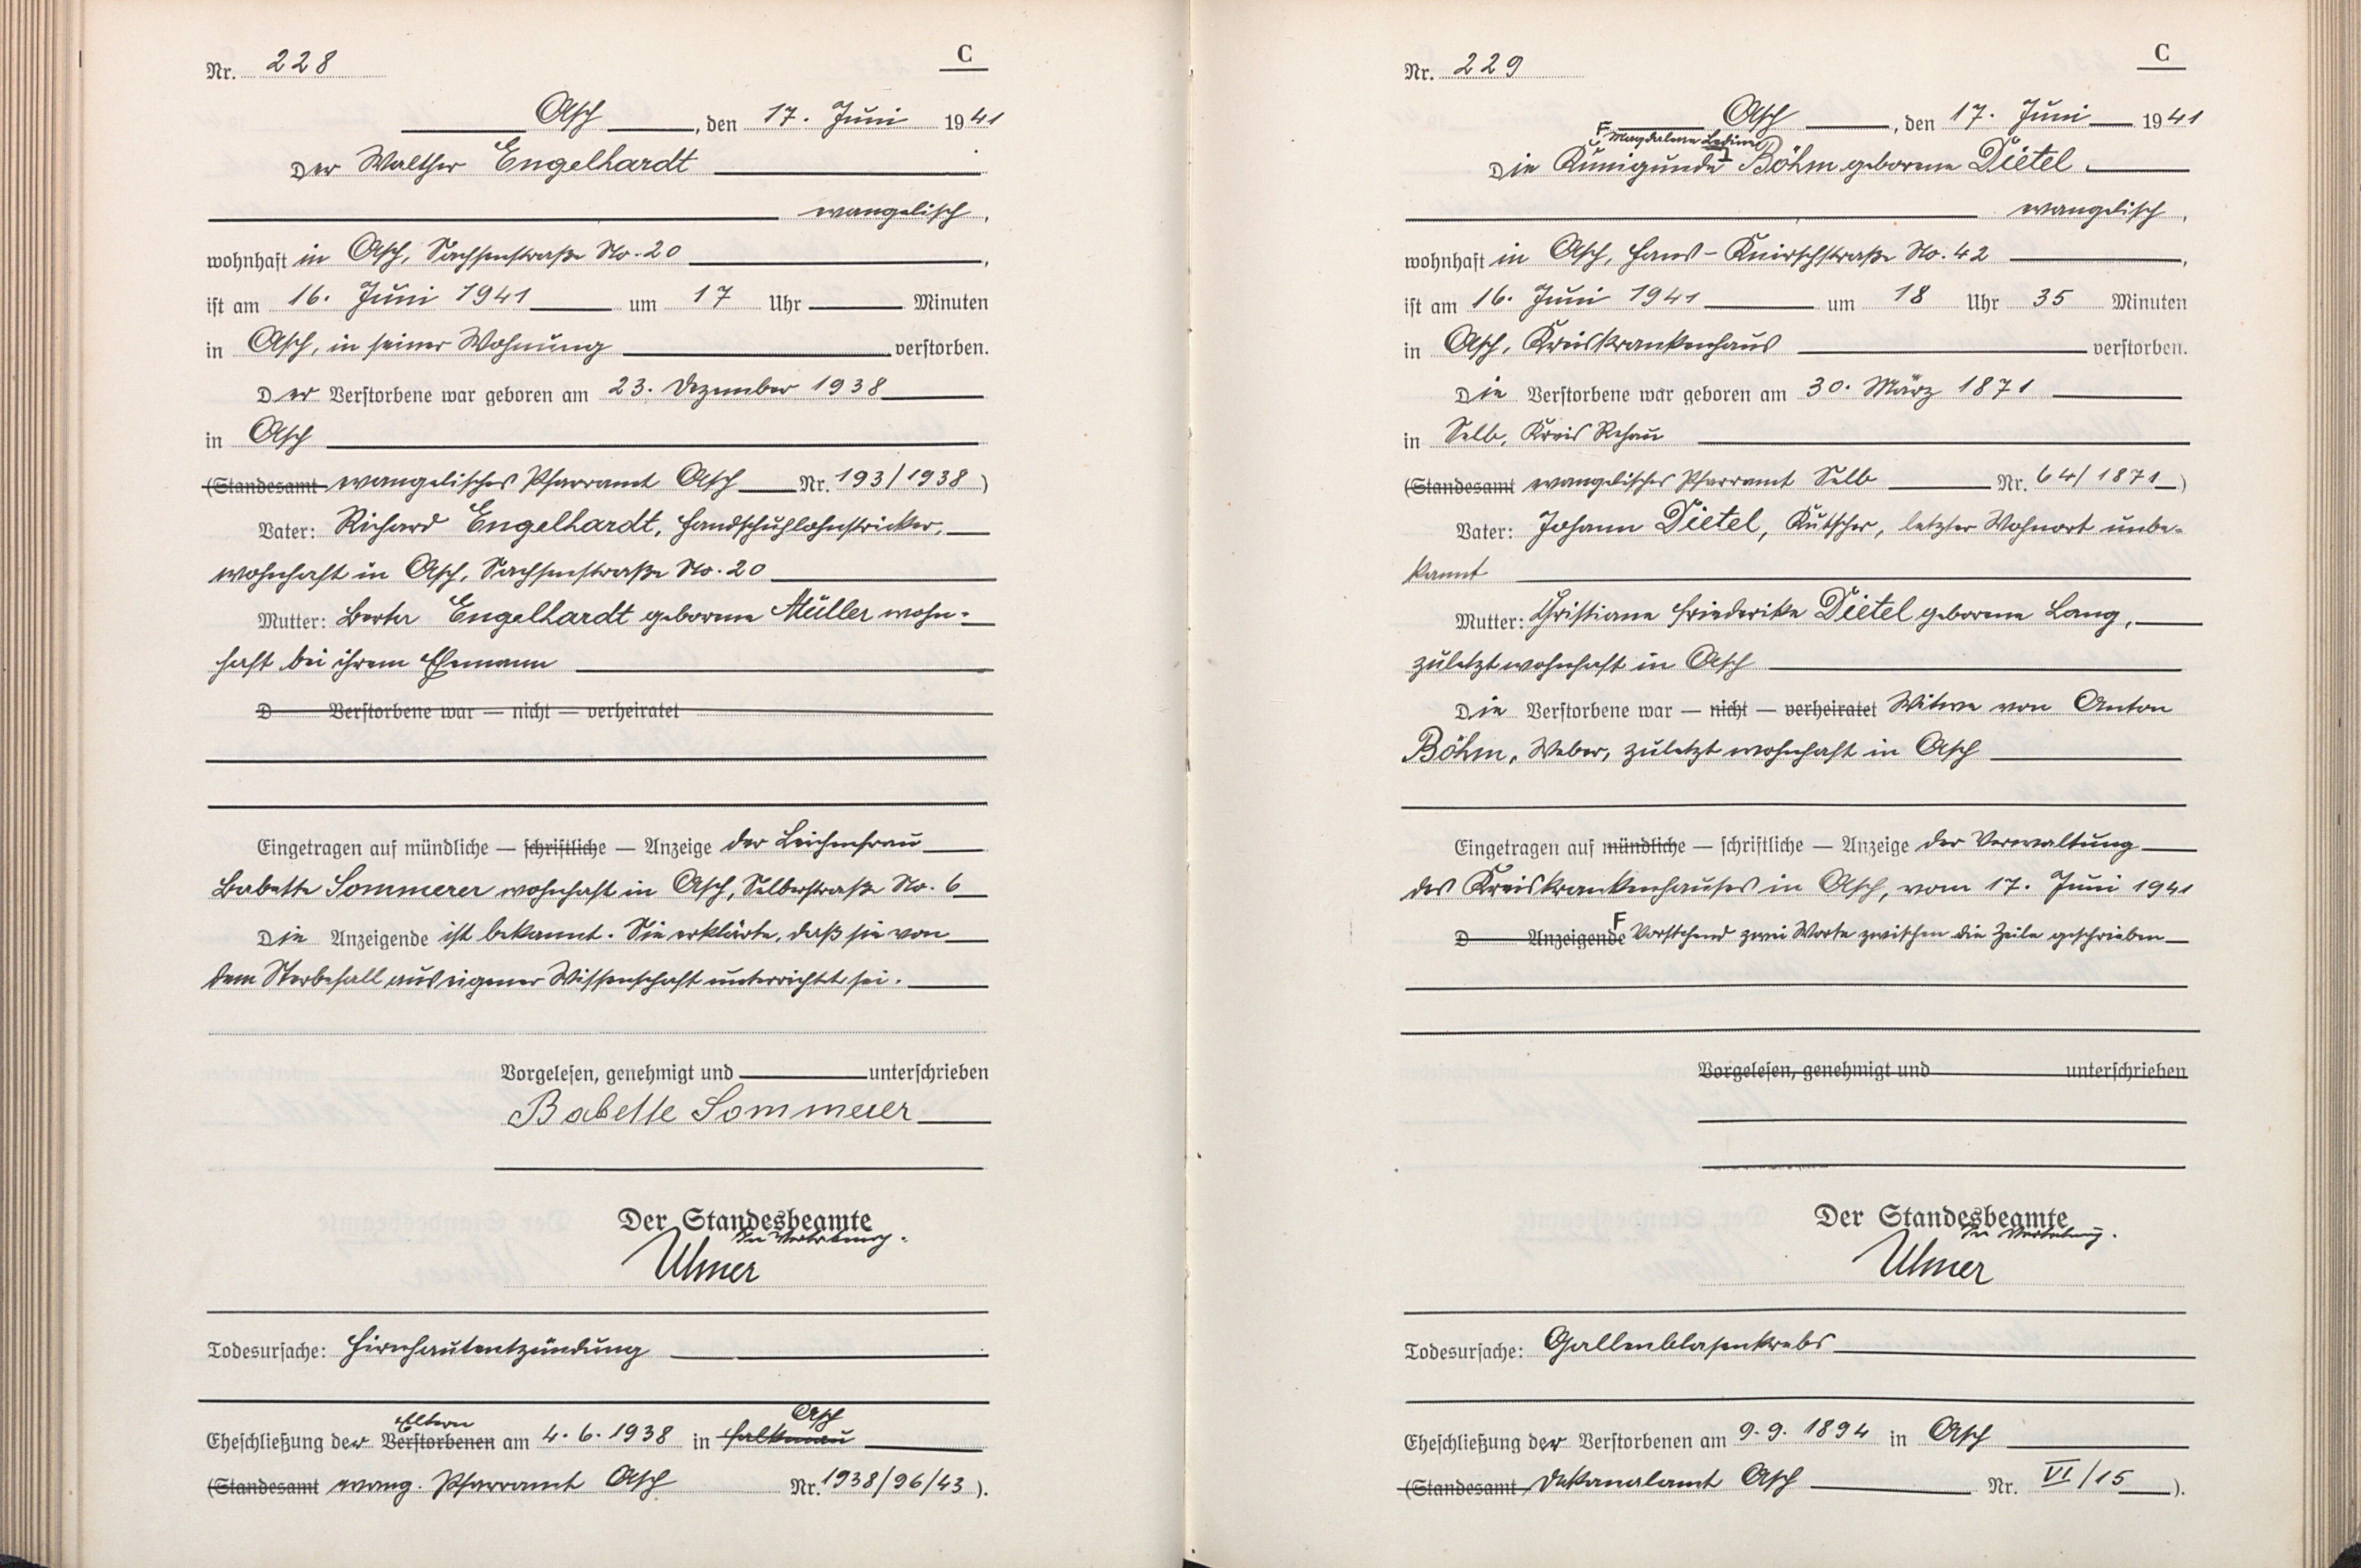 Nr. 228
C
Asch, den 17. Juni 1941
Der Walther Engelhardt
evangelisch,
wohnhaft in Asch, Sachsenstraße No. 20,
ist am 16. Juni 1941 um 17 Uhr Minuten
in Asch, in seiner Wohnung verstorben.
Der Verstorbene war geboren am 23. Dezember 1938
in Asch
(Standesamt evangelisches Pfarramt Asch Nr. 193/1938)
Vater: Richard Engelhardt, Handschuhlohnstricker,
wohnhaft in Asch, Sachsenstraße No. 20
Mutter: Berta Engelhardt geborene Müller wohn-
haft bei ihrem Ehemann
D Verstorbene war — nicht — verheiratet
Eingetragen auf mündliche — schriftliche — Anzeige der Leichenfrau
Babette Sommerer wohnhaft in Asch, Selberstraße No. 6
Die Anzeigende ist bekannt. Sie erklärte, daß sie von
dem Sterbefall aus eigener Wissenschaft unterrichtet sei.
Vorgelesen, genehmigt und unterschrieben
Babette Sommerer
Der Standesbeamte
In Vertretung.
Ulmer
Todesursache: Hirnhautentzündung
Eltern Asch
Eheschließung der Verstorbenen am 4. 6. 1938 in Falkenau
(Standesamt evang. Pfarramt Asch Nr. 1938/96/43).
Nr. 229
C
Asch, den 17. Juni 1941
F Magdalena
Die Kunigunde Böhm geborene Dietel
evangelisch,
wohnhaft in Asch, Hans-Knirschstraße No. 42,
ist am 16. Juni 1941 um 18 Uhr 35 Minuten
in Asch, Kreiskrankenhaus verstorben.
Die Verstorbene war geboren am 30. März 1871
in Selb, Kreis Rehau
(Standesamt evangelisches Pfarramt Selb Nr. 64/1871)
Vater: Johann Dietel, Kutscher, letzter Wohnort unbe-
kannt
Mutter: Christiane Friederike Dietel geborene Lang,
zuletzt wohnhaft in Asch
Die Verstorbene war — nicht — verheiratet Witwe von Anton
Böhm, Weber, zuletzt wohnhaft in Asch
Eingetragen auf mündliche — schriftliche — Anzeige der Verwaltung
des Kreiskrankenhauses in Asch, vom 17. Juni 1941
D Anzeigende F Vorstehend zwei Worte zwischen die Zeile geschrieben
Vorgelesen, genehmigt und unterschrieben
Der Standesbeamte
In Vertretung.
Ulmer
Todesursache: Gallenblasenkrebs
Eheschließung der Verstorbenen am 9. 9. 1894 in Asch
(Standesamt Dekanalamt Asch Nr. VI/15).